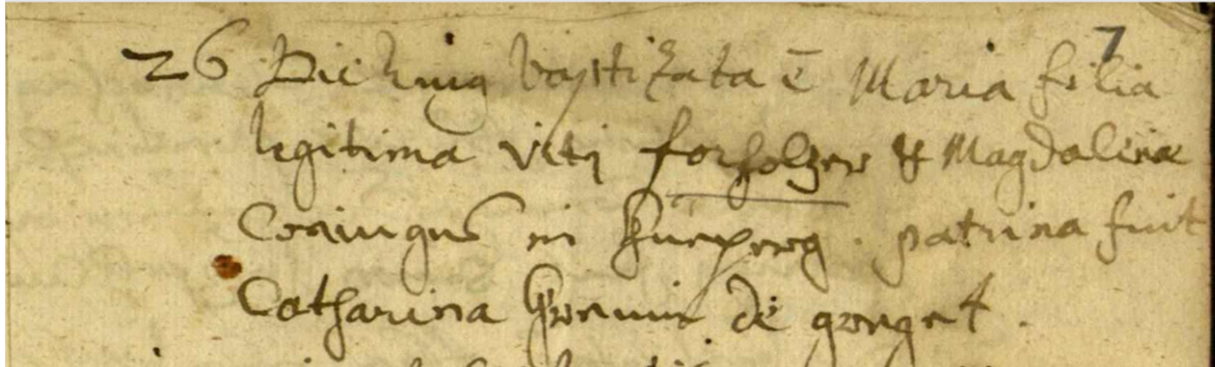 7
26 Die huius baptizata ē Maria filia
legitima Viti forholzer et Magdalena
Coniugus in . patrina fuit
Catharina de